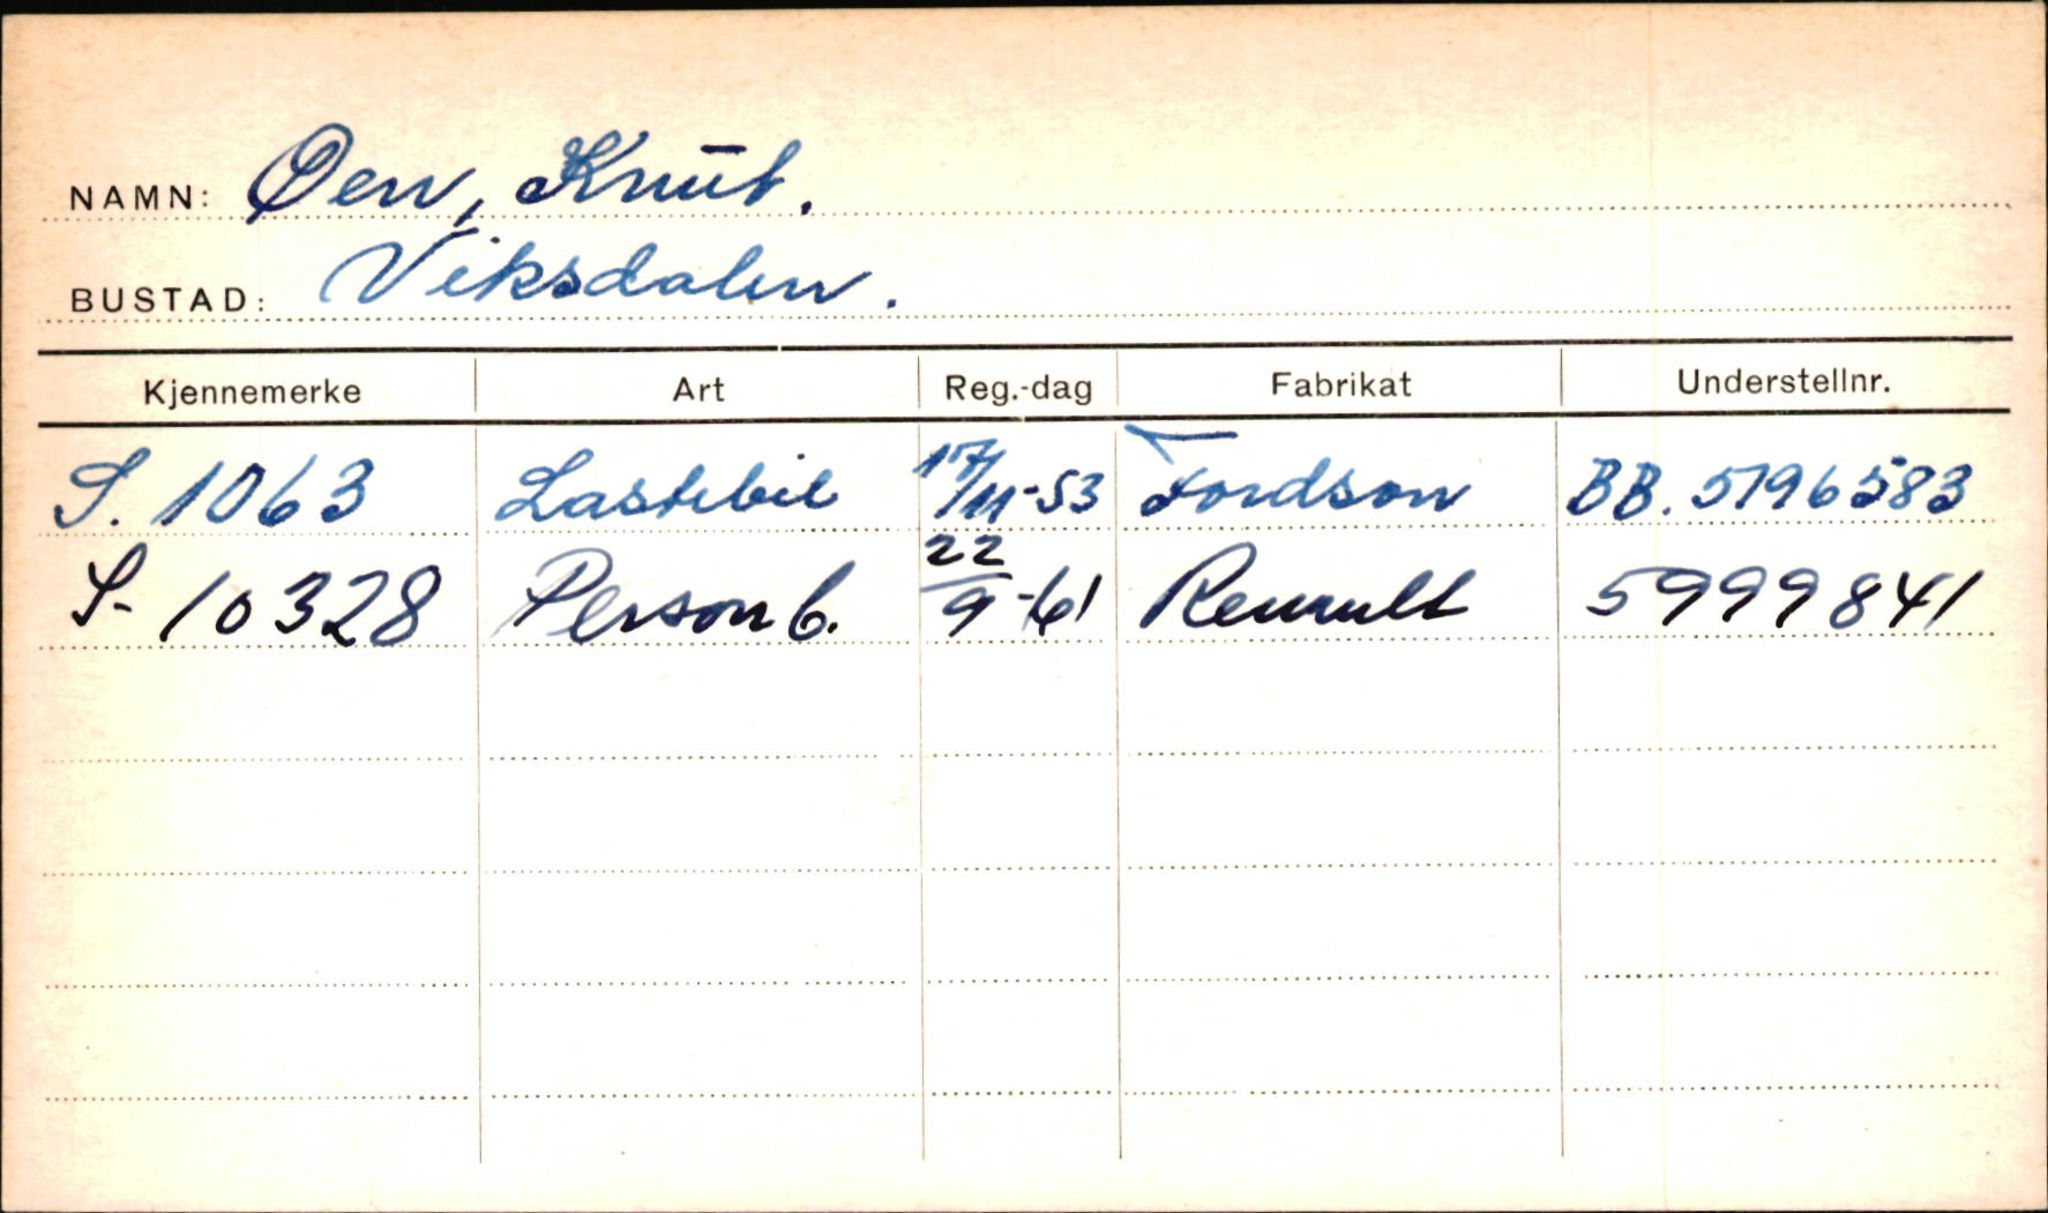 NAMN: Øen, Knut.
BUSTAD: Viksdalen.
Kjennemerke Art Reg.-dag Fabrikat Understellnr.
S. 1063 Lastebil 17/11-53 Fordson BB. 5196583
S- 10328 Person b. 22/9-61 Renault 5999841